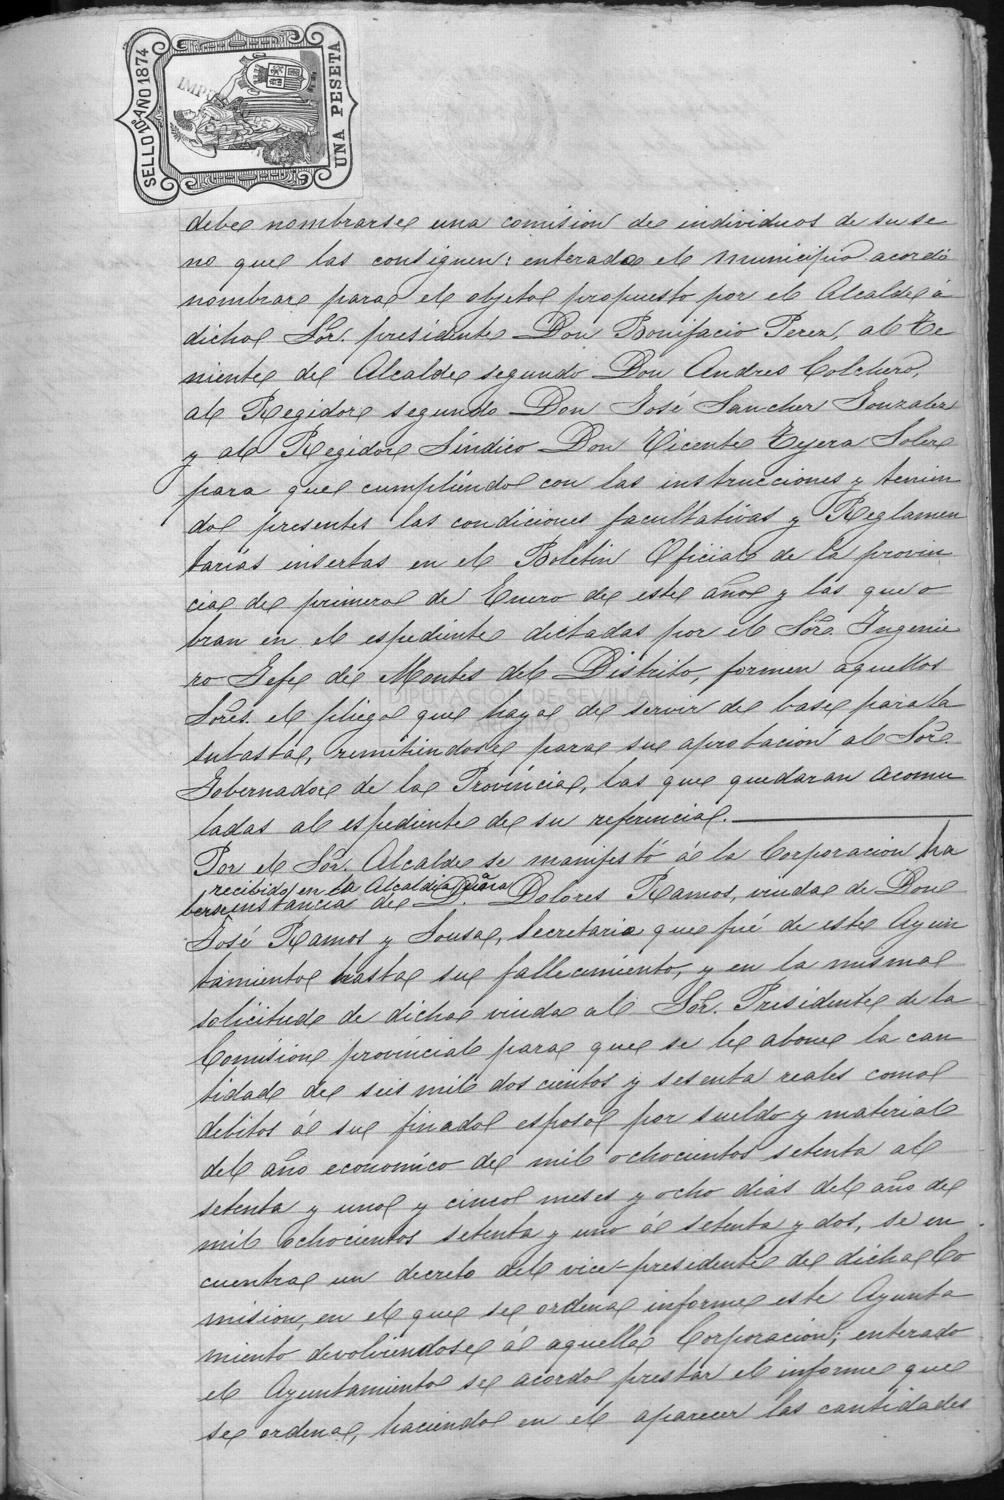 SELLO 10º AÑO 1874
UNA PESETA
debe nombrarse una comision de individuos de su se
no que las consignen: enterado el municipio acordó
nombrar para el objeto propuesto por el Alcalde á
dicho Sor. presidente Don Bonifacio Perez, al Te
niente de Alcalde segundo Don Andres Colchero,
al Regidor segundo Don José Sanchez Gonzalez
y al Regidor Sindico Don Vicente Tyera Soler
para que cumpliendo con las instrucciones y tenien
do presentes las condiciones facultativas y Reglamen
tarias insertas en el Boletin Oficial de la provin
cia de primero de Enero de este año y las que o
bran en el espediente dictadas por el Sor. Ingenie
ro Gefe de Montes del Distrito, formen aquellos
Sores. el pliego que haya de servir de base para la
subasta, remitiendose para su aprobacion al Sor.
Gobernador de la Provincia, las que quedaran acomu
ladas al espediente de su referencia.
Por el Sor. Alcalde se manifestó á la Corporacion ha
recibido en la Alcaldia una
berse instancia de D.ª Dolores Ramos, viuda de Don
José Ramos y Sousa, Secretario que fué de este Ayun
tamiento hasta su fallecimiento, y en la misma
solicitud de dicha viuda al Sor. Presidente de la
Comision provincial para que se le abone la can
tidad de seis mil dos cientos y sesenta reales como
debitos á su finado esposo por sueldo y material
del año economico de mil ochocientos setenta al
setenta y uno y cinco meses y ocho dias del año de
mil ochocientos setenta y uno á setenta y dos, se en
cuentra un decreto del vice-presidente de dicha Co
mision, en el que se ordena informe este Ayunta
miento devolviendose á aquella Corporacion; enterado
el Ayuntamiento se acordo prestar el informe que
se ordena, haciendo en el aparecer las cantidades
DIPUTACIÓN DE SEVILLA